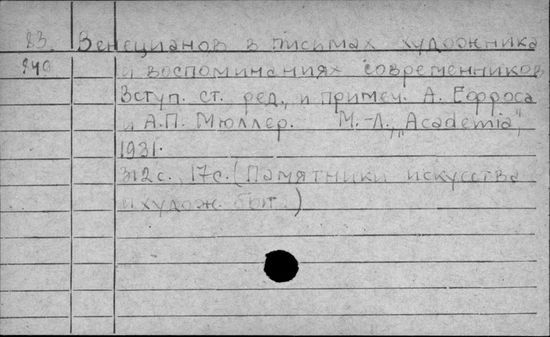 83. Венецианов в письмах художника
940 и воспоминаниях современников
Вступ. ст. ред., и примеч. А. Ефроса
и А.П. Мюллер. М.-Л., „Academia",
1931.
312с., 17с. (Памятники искусства
и худож. быт.)